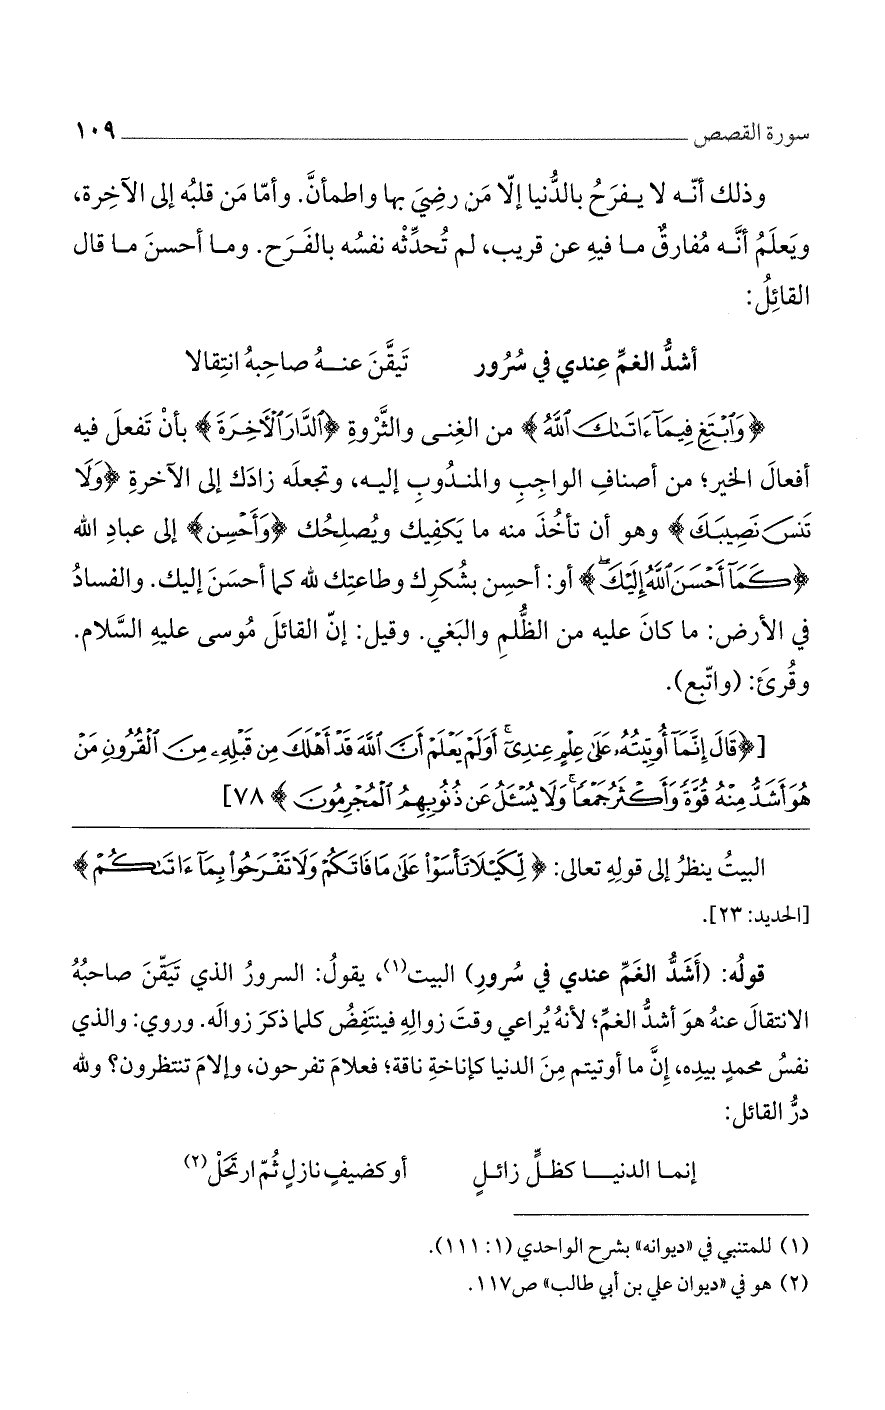 سورة القصص ١٠٩
وذلك أنّـه لا يـفرَحُ بالدُّنيا إلّا مَن رضِيَ بها واطمأنَّ. وأمّا مَن قلبُه إلى الآخِرة،
ويَعلَمُ أنَّـه مُفارقٌ مـا فيهِ عن قريب، لم تُحدِّثْه نفسُه بالفَرَح. ومـا أحسنَ مـا قال
القائِلُ:
أشدُّ الغمِّ عِندي في سُرُور تَيقَّنَ عنـهُ صاحِبهُ انتِقالا
﴿وَٱبْتَغِ فِيمَآ ءَاتَىٰكَ ٱللَّهُ﴾ من الغِنـى والثَّرْوةِ ﴿ٱلدَّارَ ٱلْأَخِرَةَ﴾ بأنْ تَفعلَ فيه
أفعالَ الخيرِ؛ من أصنافِ الواجِبِ والمنـدُوبِ إليـه، وتجعلَه زادَك إلى الآخرةِ ﴿وَلَا
تَنسَ نَصِيبَكَ﴾ وهو أن تأخُذَ منه ما يَكفِيك ويُصلِحُك ﴿وَأَحْسِن﴾ إلى عبادِ الله
﴿كَمَآ أَحْسَنَ ٱللَّهُ إِلَيْكَ﴾ أو: أحسِن بشُكرِك وطاعتِك لله كما أحسَنَ إليك. والفسادُ
في الأرض: ما كانَ عليه من الظُّلمِ والبَغي. وقيل: إنّ القائلَ مُوسى عليهِ السَّلام.
وقُرئَ: (واتّبع).
[﴿قَالَ إِنَّمَآ أُوتِيتُهُۥ عَلَىٰ عِلْمٍ عِندِىٓ ۚ أَوَلَمْ يَعْلَمْ أَنَّ ٱللَّهَ قَدْ أَهْلَكَ مِن قَبْلِهِۦ مِنَ ٱلْقُرُونِ مَنْ
هُوَ أَشَدُّ مِنْهُ قُوَّةً وَأَكْثَرُ جَمْعًا ۚ وَلَا يُسْـَٔلُ عَن ذُنُوبِهِمُ ٱلْمُجْرِمُونَ﴾ ٧٨]
البيتُ ينظرُ إلى قولِهِ تعالى: ﴿لِّكَيْلَا تَأْسَوْا۟ عَلَىٰ مَا فَاتَكُمْ وَلَا تَفْرَحُوا۟ بِمَآ ءَاتَىٰكُمْ﴾
[الحديد: ٢٣].
قولُه: (أَشَدُّ الغَمِّ عندي في سُرورِ) البيت(١)، يقولُ: السرورُ الذي تَيَقَّنَ صاحبُهُ
الانتقالَ عنهُ هوَ أشدُّ الغمِّ؛ لأنهُ يُراعي وقتَ زوالِهِ فينتَفِضُ كلما ذكرَ زوالَه. وروي: والذي
نفسُ محمدٍ بيدِه، إنَّ ما أوتيتم مِنَ الدنيا كإناخةِ ناقة؛ فعلامَ تفرحون، وإلامَ تنتظرون؟ ولله
درُّ القائل:
إنمـا الدنيـــا كظـلٍّ زائـلٍ أو كضيفٍ نازلٍ ثُمّ ارتَحَلْ(٢)
(١) للمتنبي في «ديوانه» بشرح الواحدي (١: ١١١).
(٢) هو في «ديوان علي بن أبي طالب» ص١١٧.